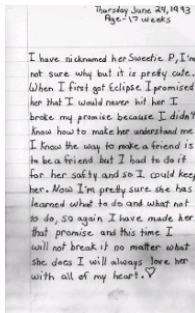 Thursday June 24, 1993
Age-17 weeks
I have nicknamed her Sweetie P, I'm
not sure why but it is pretty cute.
When I first got Eclipse I promised
her that I would never hit her I
broke my promise because I didn't
Know how to make her understand me
I Know the way to make a friend is
to be a friend but I had to do it
for her safty and so I could keep
her. Now I'm pretty sure she has
learned what to do and what not
to do, so again I have made her
that promise and this time I
will not break it no matter what
she does I will always love her
with all of my heart. ♡